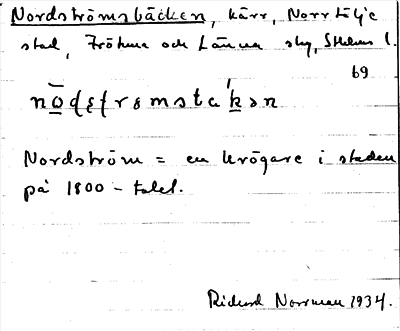 Nordströmsbäcken, kärr, Norrtälje
stad, Frötuna och Länna skg, Sthlms l.
69
Nordström = en krögare i staden
på 1800-talet.
Rickard Norrman 1934.